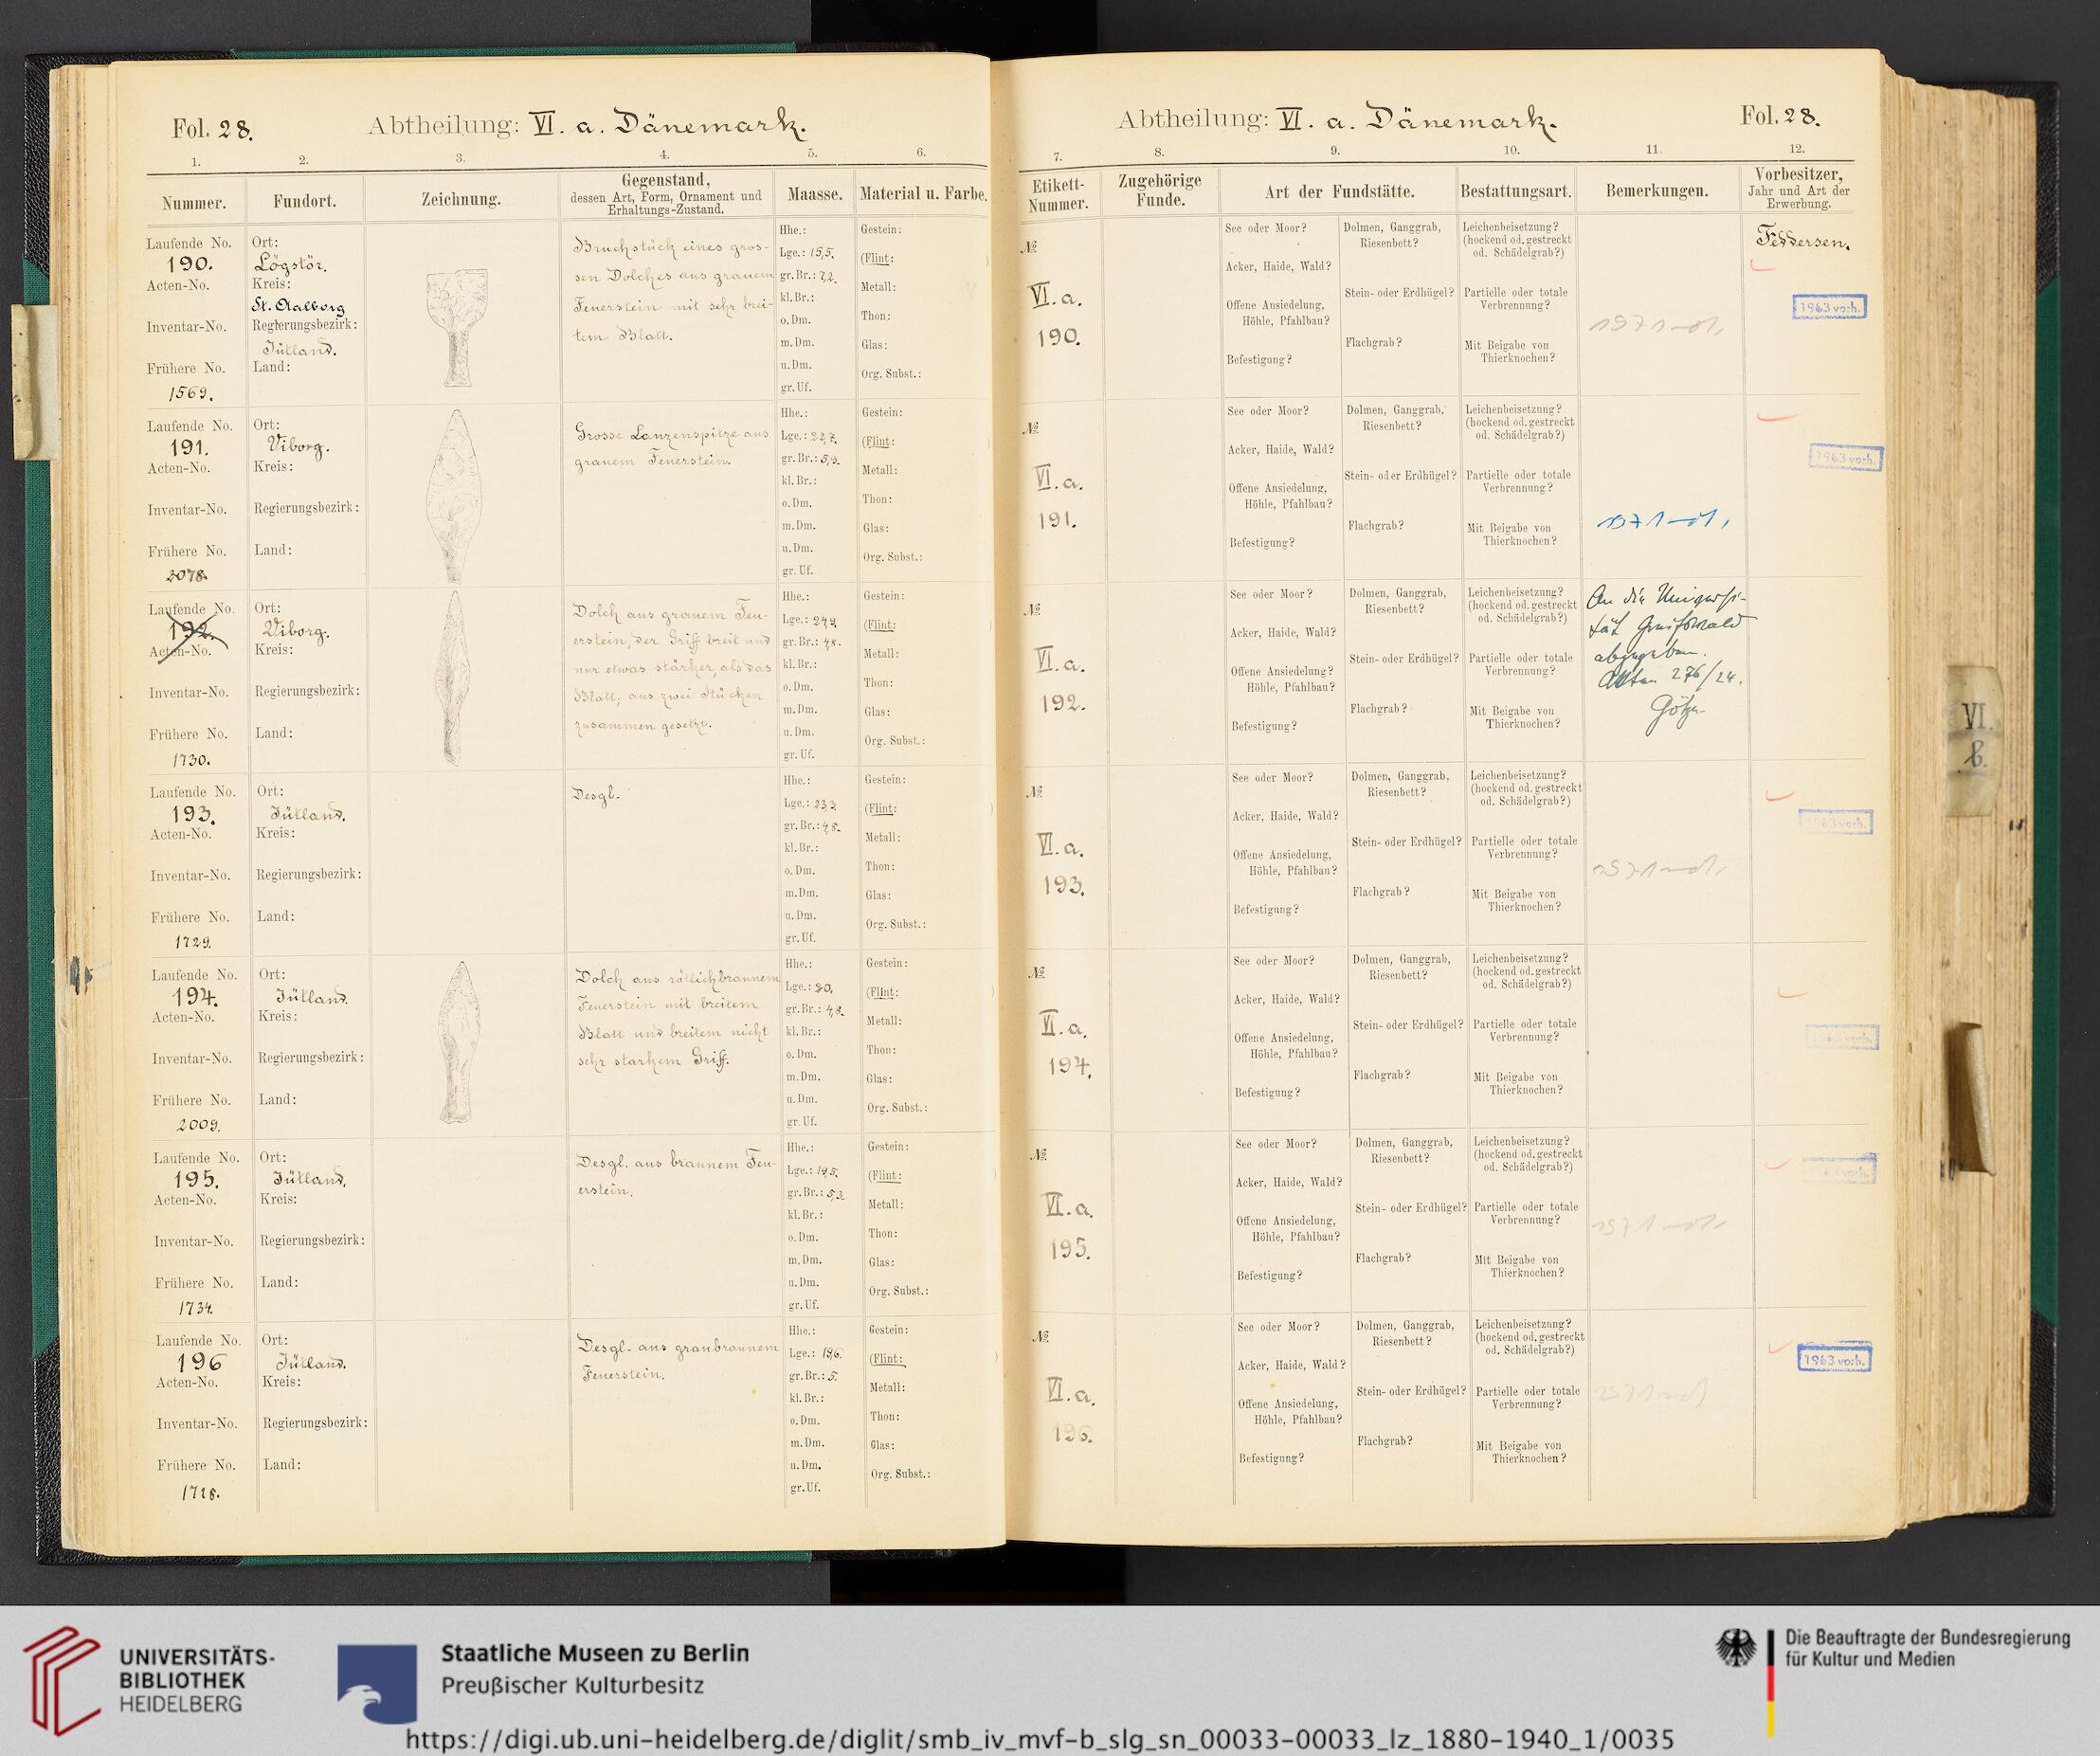 Fol. 28.
Abtheilung: VI. a. Dänemark.
1. 2. 3. 4. 5. 6.
Nummer.
Fundort.
Zeichnung.
Gegenstand,
dessen Art, Form, Ornament und
Erhaltungs-Zustand.
Maasse.
Material u. Farbe.
Laufende No.
190.
Acten-No.
Inventar-No.
Frühere No.
1569.
Ort:
Lögstör.
Kreis:
St. Aalborg
Regierungsbezirk:
Jütland.
Land:
Bruchstück eines gros-
sen Dolches aus grauem
Feuerstein mit sehr brei-
tem Blatt.
Hhe.:
Lge.: 15,5.
gr. Br.: 7,2.
kl. Br.:
o. Dm.
m. Dm.
u. Dm.
gr. Uf.
Gestein:
(Flint: )
Metall:
Thon:
Glas:
Org. Subst.:
Laufende No.
191.
Acten-No.
Inventar-No.
Frühere No.
2078.
Ort:
Viborg.
Kreis:
Regierungsbezirk:
Land:
Grosse Lanzenspitze aus
grauem Feuerstein.
Hhe.:
Lge.: 22,7.
gr. Br.: 5,9.
kl. Br.:
o. Dm.
m. Dm.
u. Dm.
gr. Uf.
Gestein:
(Flint:
Metall:
Thon:
Glas:
Org. Subst.:
Laufende No.
192.
Acten-No.
Inventar-No.
Frühere No.
1730.
Ort:
Viborg.
Kreis:
Regierungsbezirk:
Land:
Dolch aus grauem Feu-
erstein, der Griff breit und
nur etwas stärker, als das
Blatt; aus zwei Stücken
zusammen gesetzt.
Hhe.:
Lge.: 24,2.
gr. Br.: 4,8.
kl. Br.:
o. Dm.
m. Dm.
u. Dm.
gr. Uf.
Gestein:
(Flint:
Metall:
Thon:
Glas:
Org. Subst.:
Laufende No.
193.
Acten-No.
Inventar-No.
Frühere No.
1729.
Ort:
Jütland.
Kreis:
Regierungsbezirk:
Land:
Desgl.
Hhe.:
Lge.: 23,2.
gr. Br.: 4,8.
kl. Br.:
o. Dm.
m. Dm.
u. Dm.
gr. Uf.
Gestein:
(Flint: )
Metall:
Thon:
Glas:
Org. Subst.:
Laufende No.
194.
Acten-No.
Inventar-No.
Frühere No.
2009.
Ort:
Jütland.
Kreis:
Regierungsbezirk:
Land:
Dolch aus rötlichbraunem
Feuerstein mit breitem
Blatt und breitem nicht
sehr starkem Griff.
Hhe.:
Lge.: 20.
gr. Br.: 4,8.
kl. Br.:
o. Dm.
m. Dm.
u. Dm.
gr. Uf.
Gestein:
(Flint: )
Metall:
Thon:
Glas:
Org. Subst.:
Laufende No.
195.
Acten-No.
Inventar-No.
Frühere No.
1734.
Ort:
Jütland.
Kreis:
Regierungsbezirk:
Land:
Desgl. aus braunem Feu-
erstein.
Hhe.:
Lge.: 19,5.
gr. Br.: 5,3.
kl. Br.:
o. Dm.
m. Dm.
u. Dm.
gr. Uf.
Gestein:
(Flint: )
Metall:
Thon:
Glas:
Org. Subst.:
Laufende No.
196
Acten-No.
Inventar-No.
Frühere No.
1728.
Ort:
Jütland.
Kreis:
Regierungsbezirk:
Land:
Desgl. aus graubraunem
Feuerstein.
Hhe.:
Lge.: 19,6.
gr. Br.: 5.
kl. Br.:
o. Dm.
m. Dm.
u. Dm.
gr. Uf.
Gestein:
(Flint: )
Metall:
Thon:
Glas:
Org. Subst.:
Abtheilung: VI. a. Dänemark.
Fol. 28.
7. 8. 9. 10. 11. 12.
Etikett-
Nummer.
Zugehörige
Funde.
Art der Fundstätte.
Bestattungsart.
Bemerkungen.
Vorbesitzer,
Jahr und Art der
Erwerbung.
№
VI. a.
190.
See oder Moor?
Acker, Haide, Wald?
Offene Ansiedelung,
Höhle, Pfahlbau?
Befestigung?
Dolmen, Ganggrab,
Riesenbett?
Stein- oder Erdhügel?
Flachgrab?
Leichenbeisetzung?
(hockend od. gestreckt
od. Schädelgrab?)
Partielle oder totale
Verbrennung?
Mit Beigabe von
Thierknochen?
Feddersen.
1963 vorh.
№
VI. a.
191.
See oder Moor?
Acker, Haide, Wald?
Offene Ansiedelung,
Höhle, Pfahlbau?
Befestigung?
Dolmen, Ganggrab,
Riesenbett?
Stein- oder Erdhügel?
Flachgrab?
Leichenbeisetzung?
(hockend od. gestreckt
od. Schädelgrab?)
Partielle oder totale
Verbrennung?
Mit Beigabe von
Thierknochen?
1963 vorh.
№
VI. a.
192.
See oder Moor?
Acker, Haide, Wald?
Offene Ansiedelung?
Höhle, Pfahlbau?
Befestigung?
Dolmen, Ganggrab,
Riesenbett?
Stein- oder Erdhügel?
Flachgrab?
Leichenbeisetzung?
(hockend od. gestreckt
od. Schädelgrab?)
Partielle oder totale
Verbrennung?
Mit Beigabe von
Thierknochen?
An die Universi-
tät Greifswald
abgegeben.
Akten 276/24.
Götze
№
VI. a.
193.
See oder Moor?
Acker, Haide, Wald?
Offene Ansiedelung,
Höhle, Pfahlbau?
Befestigung?
Dolmen, Ganggrab,
Riesenbett?
Stein- oder Erdhügel?
Flachgrab?
Leichenbeisetzung?
(hockend od. gestreckt
od. Schädelgrab?)
Partielle oder totale
Verbrennung?
Mit Beigabe von
Thierknochen?
1963 vorh.
№
VI. a.
194.
See oder Moor?
Acker, Haide, Wald?
Offene Ansiedelung,
Höhle, Pfahlbau?
Befestigung?
Dolmen, Ganggrab,
Riesenbett?
Stein- oder Erdhügel?
Flachgrab?
Leichenbeisetzung?
(hockend od. gestreckt
od. Schädelgrab?)
Partielle oder totale
Verbrennung?
Mit Beigabe von
Thierknochen?
1963 vorh.
№
VI. a.
195.
See oder Moor?
Acker, Haide, Wald?
Offene Ansiedelung,
Höhle, Pfahlbau?
Befestigung?
Dolmen, Ganggrab,
Riesenbett?
Stein- oder Erdhügel?
Flachgrab?
Leichenbeisetzung?
(hockend od. gestreckt
od. Schädelgrab?)
Partielle oder totale
Verbrennung?
Mit Beigabe von
Thierknochen?
1963 vorh.
№
VI. a.
196.
See oder Moor?
Acker, Haide, Wald?
Offene Ansiedelung,
Höhle, Pfahlbau?
Befestigung?
Dolmen, Ganggrab,
Riesenbett?
Stein- oder Erdhügel?
Flachgrab?
Leichenbeisetzung?
(hockend od. gestreckt
od. Schädelgrab?)
Partielle oder totale
Verbrennung?
Mit Beigabe von
Thierknochen?
1963 vorh.
VI.
b.
UNIVERSITÄTS-
BIBLIOTHEK
HEIDELBERG
Staatliche Museen zu Berlin
Preußischer Kulturbesitz
Die Beauftragte der Bundesregierung
für Kultur und Medien
https://digi.ub.uni-heidelberg.de/diglit/smb_iv_mvf-b_slg_sn_00033-00033_lz_1880-1940_1/0035